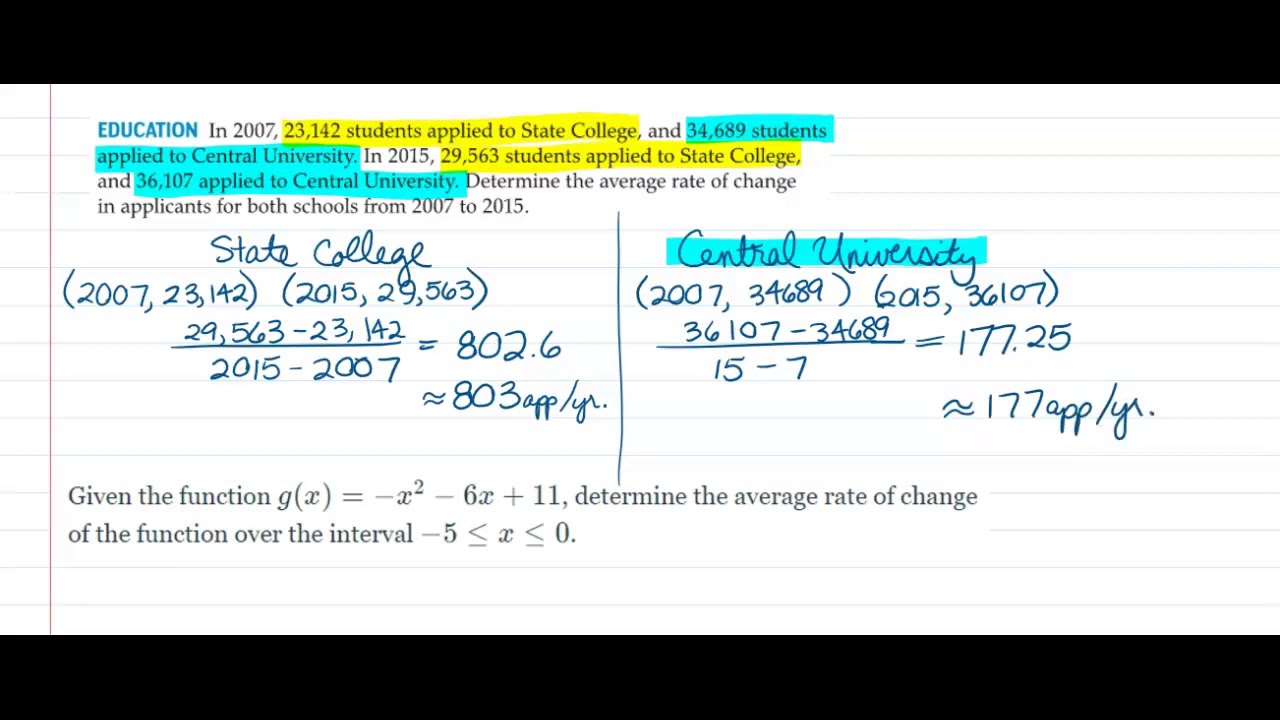 EDUCATION In 2007, 23,142 students applied to State College, and 34,689 students
applied to Central University. In 2015, 29,563 students applied to State College,
and 36,107 applied to Central University. Determine the average rate of change
in applicants for both schools from 2007 to 2015.
State College
(2007, 23,142) (2015, 29,563)
29,563 - 23,142
2015 - 2007
= 802.6
≈ 803 app/yr.
Central University
(2007, 34689) (2015, 36107)
36107 - 34689
15 - 7
= 177.25
≈ 177 app/yr.
Given the function g(x) = −x² − 6x + 11, determine the average rate of change
of the function over the interval −5 ≤ x ≤ 0.